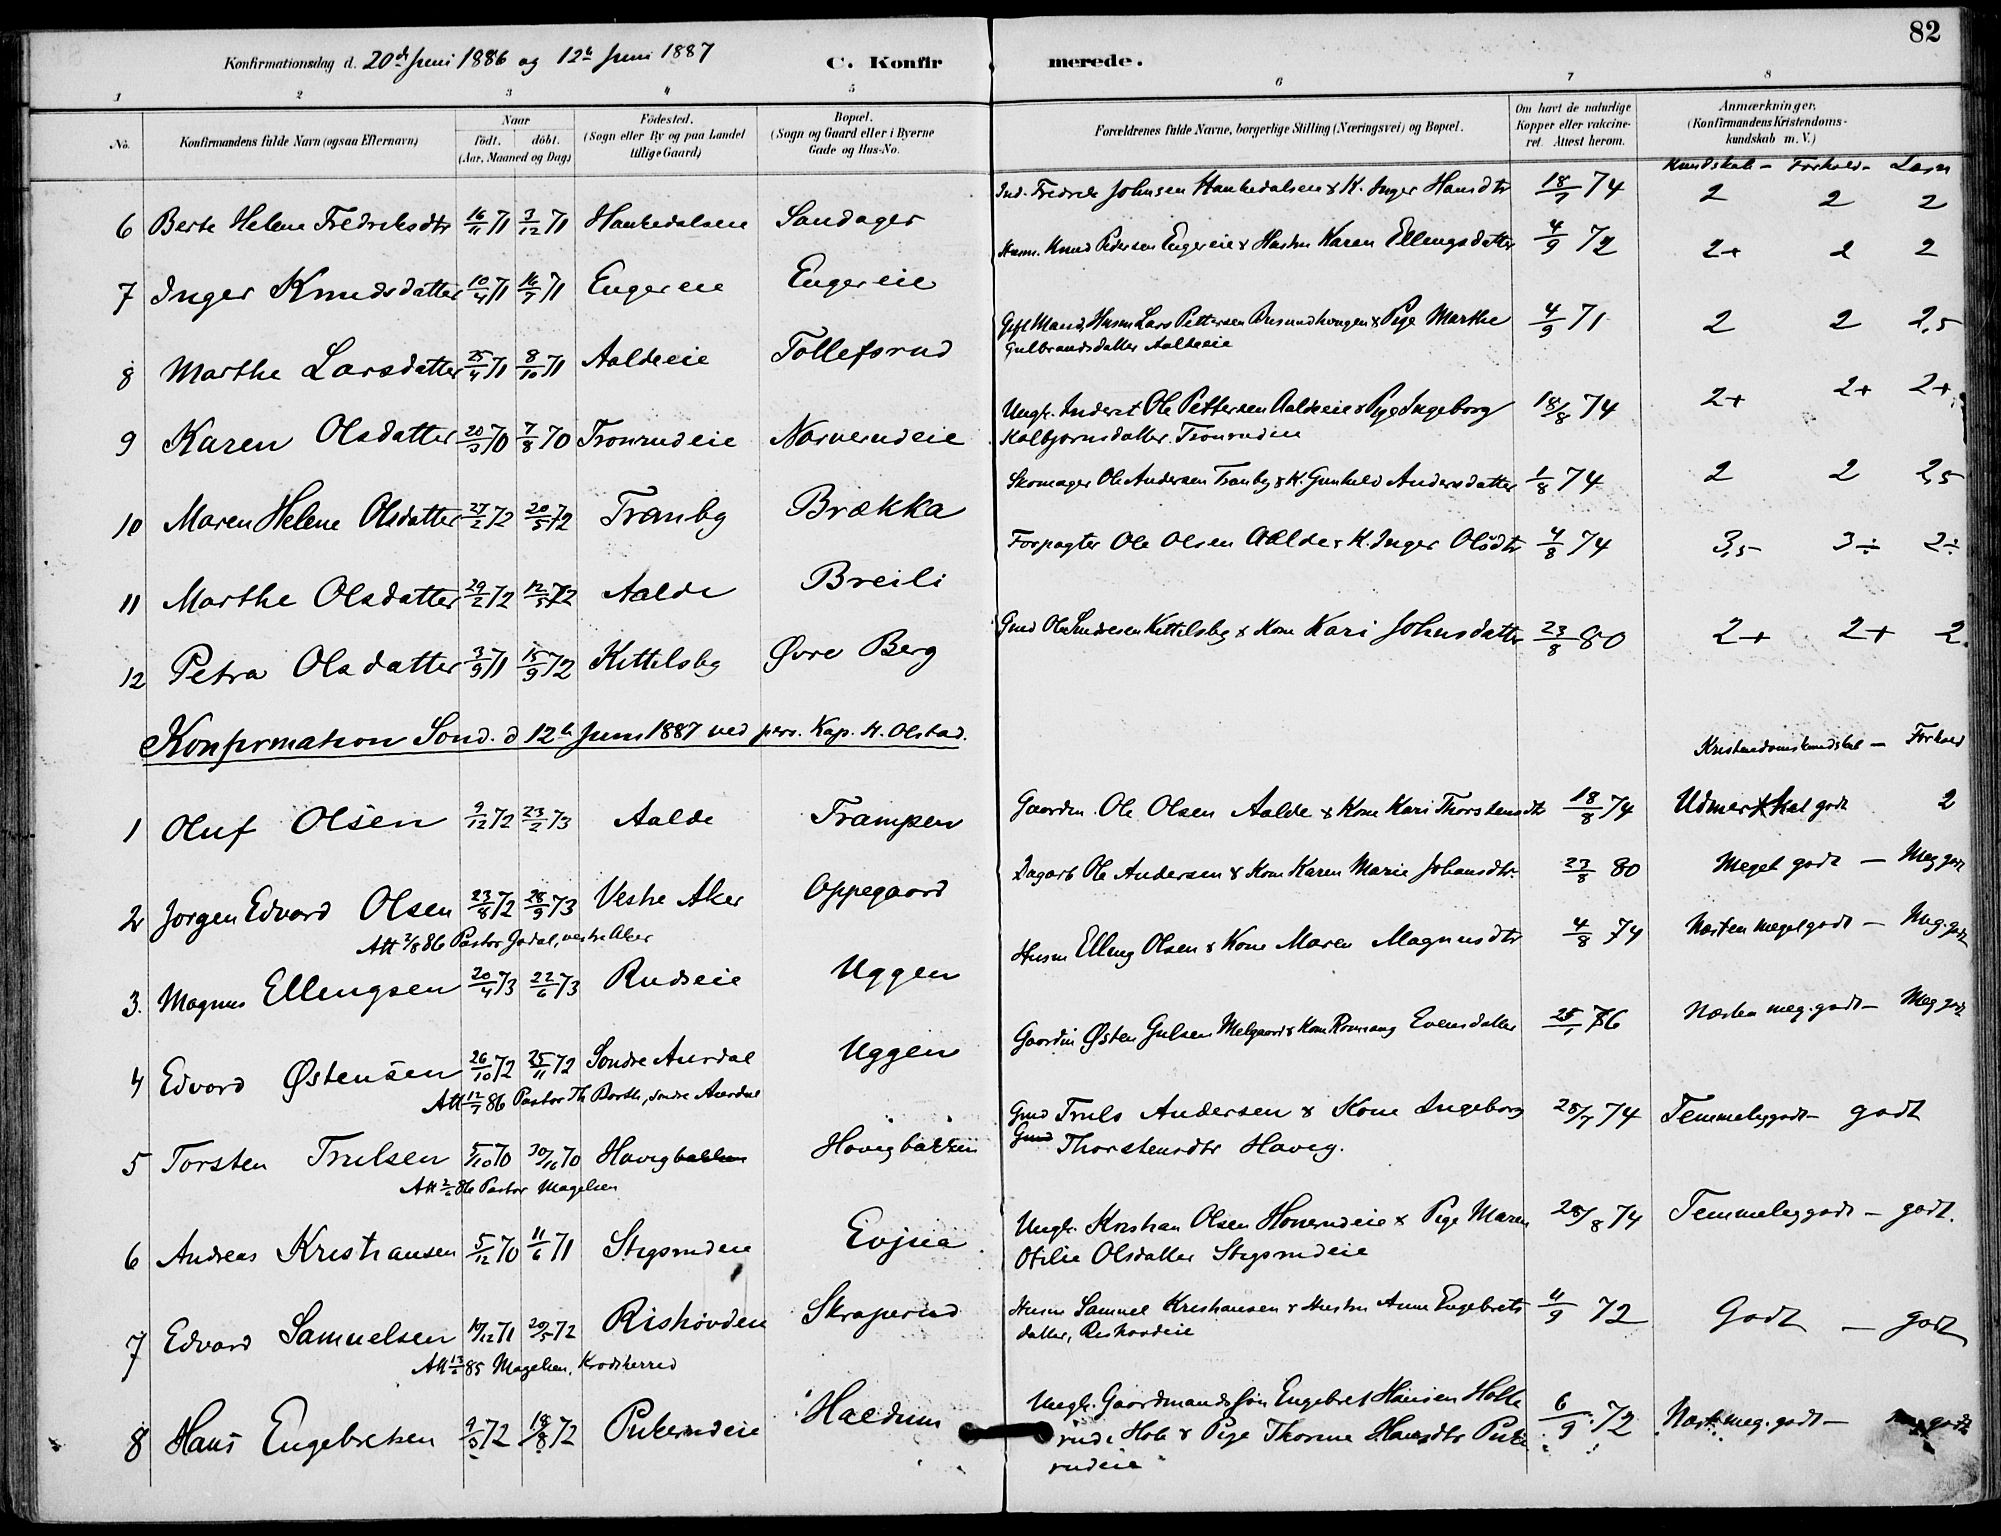 82
Konfirmationsdag d. 20de Juni 1886 og 12te Juni 1887 C. Konfirmerede.
1 2 3 4 5 6 7 8
No. Konfirmandens fulde Navn (ogsaa Efternavn) Naar født. døbt. (Aar, Maaned og Dag) Födested. (Sogn eller By og paa Landet tillige Gaard) Bopæl. (Sogn og Gaard eller i Byerne Gade og Hus-No. Forældrenes fulde Navne, borgerlige Stilling (Næringsvei) og Bopæl. Om havt de naturlige Kopper eller vakcineret. Attest herom. Anmærkninger, (Konfirmandens Kristendomskundskab m. V.)
Kundskab - Forhold - Læsn
6 Berte Helene Fredriksdtr 16/11 71 3/12 71 Hankedalseie Sandager Ind. Fredrik Johnsen Hankedalseie & K. Inger Hansdtr 18/7 74 2 2 2
7 Inger Knudsdatter 10/4 71 16/7 71 Engereie Engereie Husm. Knud Pedersen Engereie & Hustru Karen Ellingsdatter 4/9 72 2+ 2 2
8 Marthe Larsdatter 25/4 71 8/10 71 Aaldeeie Tollefsrud Gift Mand, Husm Lars Pettersen & Pige Marthe
Gulbrandsdatter Aaldeeie 4/9 71 2 2 2,5
9 Karen Olsdatter 20/3 70 7/8 70 Tronrudeie Narverudeie Ungk. Inderst Ole Pettersen Aaldeeie & Pige Ingeborg
Kolbjørnsdatter Tronrudeie 18/8 74 2+ 2+ 2+
10 Maren Helene Olsdatter 27/2 72 20/5 72 Tranby Brækka Skomager Ole Andersen Tranby & K. Gunhild Andersdatter 1/8 74 2 2 2,5
11 Marthe Olsdatter 29/2 72 12/5 72 Aalde Breili Forpagter Ole Olsen Aalde & K. Inger Olsdtr 4/8 74 3,5 3÷ 2÷
12 Petra Olsdatter 3/9 71 15/9 72 Kittelsby Øvre Berg Gmd Ole Kittelsby & Kone Kari Johnsdatter 23/8 80 2+ 2+ 2
Konfirmation Sønd. d 12te Juni 1887 ved pers. Kap. H. Olstad.
Kristendomskundskab - Forhold
1 Oluf Olsen 9/12 72 23/2 73 Aalde Trampen Gaardm. Ole Olsen Aalde & Kone Kari Thorstensdtr 18/8 74 Udmerket godt 2
2 Jørgen Edvard Olsen 23/8 72 28/9 73 Vestre Aker Oppegaard Dagarb Ole Andersen & Kone Karen Marie Johansdtr. 23/8 80 Meget godt - Meg godt
Att 2/8 86 Pastor Jødal, vestre Aker
3. Magnus Ellingsen 20/4 73 22/6 73 Rudseie Uggen Husm Elling Olsen & Kone Maren Magnusdtr 4/8 74 Næsten meget godt - Meg. godt
4 Edvard Østensen 26/10 72 25/11 72 Søndre Aurdal Uggen Gaardm Østen Gulsen Melgaard & Kone Ronnaug Evensdatter 25/1 76 Næsten meg. godt - Meg godt
Att 12/7 86 Pastor Th Barth, søndre Aurdal
5 Torsten Trulsen 5/10 70 30/10 70 Høvigbakken Høvigbakken Gmd Truls Andersen & Kone Ingeborg
Gmd Thorstensdtr Høvig. 28/7 74 Temmelig godt - godt
Att 2/6 86 Pastor Magelsen
6 Andreas Kristiansen 5/12 70 11/6 71 Stigsrudeie Evjua Ungk. Kristian Olsen Honerudeie & Pige Maren
Otilie Olsdatter Stigsrudeie 28/8 74 Temmelig godt - godt.
7 Edvard Samuelsen 19/12 71 20/5 72 Rishøvdeie Skraperud Husm Samuel Kristiansen & Hustru Anne Engebrets
datter, Rishovdeie 4/9 72 Godt - godt
Att 13/6 85 Magelsen, Krødsherred
8 Hans Engebretsen 9/3 72 18/8 72 Pukerudeie Haldum Ungk. Gaardmands Søn Engebret Hansen Holte
rud i Hole & Pige Thorine Hansdtr Puke
rudeie 6/9 72 Næst. meg. godt - godt